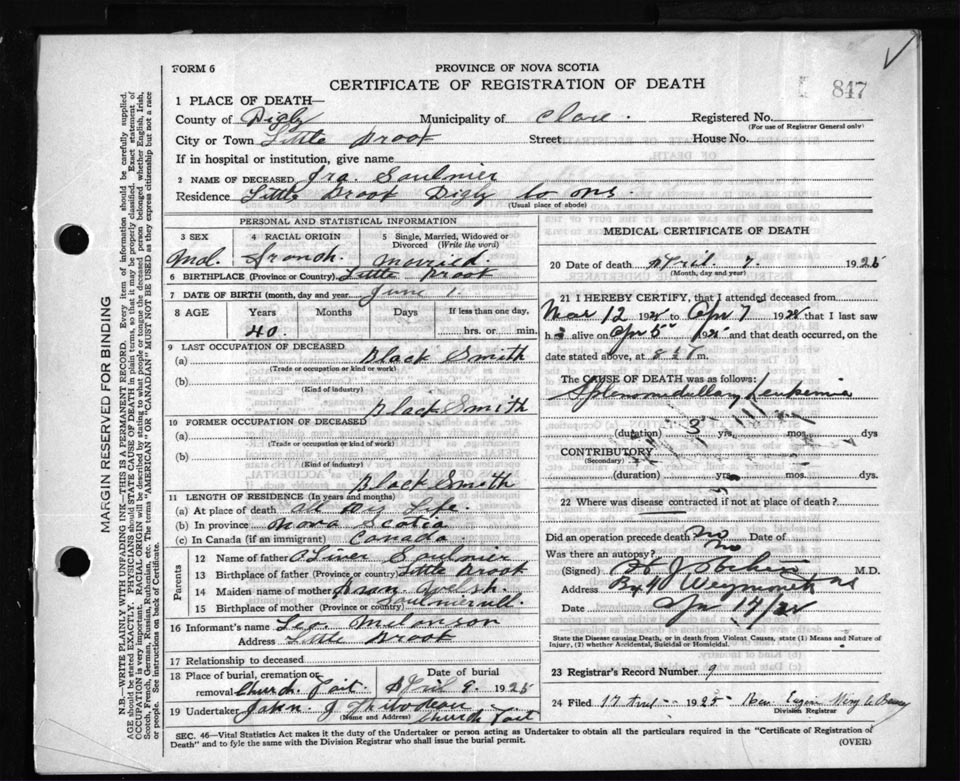 FORM 6
PROVINCE OF NOVA SCOTIA
CERTIFICATE OF REGISTRATION OF DEATH
847
1 PLACE OF DEATH—
County of Digby Municipality of Clare. Registered No.
(For use of Registrar General only)
City or Town Little Brook Street House No.
If in hospital or institution, give name
2 NAME OF DECEASED Ira Saulnier
Residence Little Brook Digby Co NS.
(Usual place of abode)
PERSONAL AND STATISTICAL INFORMATION
3 SEX 4 RACIAL ORIGIN 5 Single, Married, Widowed or Divorced (Write the word)
French. Married.
6 BIRTHPLACE (Province or Country) Little Brook
7 DATE OF BIRTH (month, day and year June 1.
8 AGE Years Months Days If less than one day,
40. hrs. or min.
9 LAST OCCUPATION OF DECEASED
(a) Black Smith
(Trade or occupation or kind or work)
(b)
(Kind of industry)
Black Smith
10 FORMER OCCUPATION OF DECEASED
(a)
(Trade or occupation or kind of work)
(b)
(Kind of industry)
Black Smith
11 LENGTH OF RESIDENCE (In years and months)
(a) At place of death all his Life.
(b) In province Nova Scotia
(c) In Canada (if an immigrant) Canada.
Parents
12 Name of father Oliver Saulnier
13 Birthplace of father (Province or country) Little Brook
14 Maiden name of mother
15 Birthplace of mother (Province or country)
16 Informant's name Leo. Melanson
Address Little Brook
17 Relationship to deceased
18 Place of burial, cremation or removal Church Point Date of burial April 9. 1925
19 Undertaker John J Thibodeau
(Name and Address) Church Point
MEDICAL CERTIFICATE OF DEATH
20 Date of death April 7. 1925
(Month, day and year)
21 I HEREBY CERTIFY, that I attended deceased from
Mar 12 192 to Apr 7 192 that I last saw
h alive on Apr 5 192 and that death occurred, on the
date stated above, at m.
The CAUSE OF DEATH was as follows:
Splenomedullary Leukaemia
(duration) 3 yrs. mos. dys
CONTRIBUTORY
(Secondary)
(duration) yrs. mos. dys.
22 Where was disease contracted if not at place of death?
Did an operation precede death no Date of
Was there an autopsy? no
(Signed) M.D.
Address Weymouth NS
Date Apr 14/
State the Disease causing Death, or in death from Violent Causes, state (1) Means and Nature of Injury, (2) whether Accidental, Suicidal or Homicidal.
23 Registrar's Record Number 9
24 Filed 17 April 1925
Division Registrar
SEC. 46—Vital Statistics Act makes it the duty of the Undertaker or person acting as Undertaker to obtain all the particulars required in the "Certificate of Registration of
Death" and to fyle the same with the Division Registrar who shall issue the burial permit.
(OVER)
MARGIN RESERVED FOR BINDING
N.B.—WRITE PLAINLY WITH UNFADING INK—THIS IS A PERMANENT RECORD. Every item of information should be carefully supplied.
AGE should be stated EXACTLY. PHYSICIANS should STATE CAUSE OF DEATH in plain terms, so that it may be properly classified. Exact statement of
OCCUPATION is very important. RACIAL ORIGIN will be described by stating to what people or tongue the deceased person belonged whether English, Irish,
Scotch, French, German, Russian, Ruthenian, etc. The terms "AMERICAN" OR "CANADIAN" MUST NOT BE USED as they express citizenship but not a race
or people. See instructions on back of Certificate.